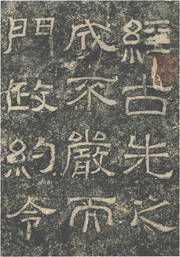 經古先之
成不嚴而
門政約令